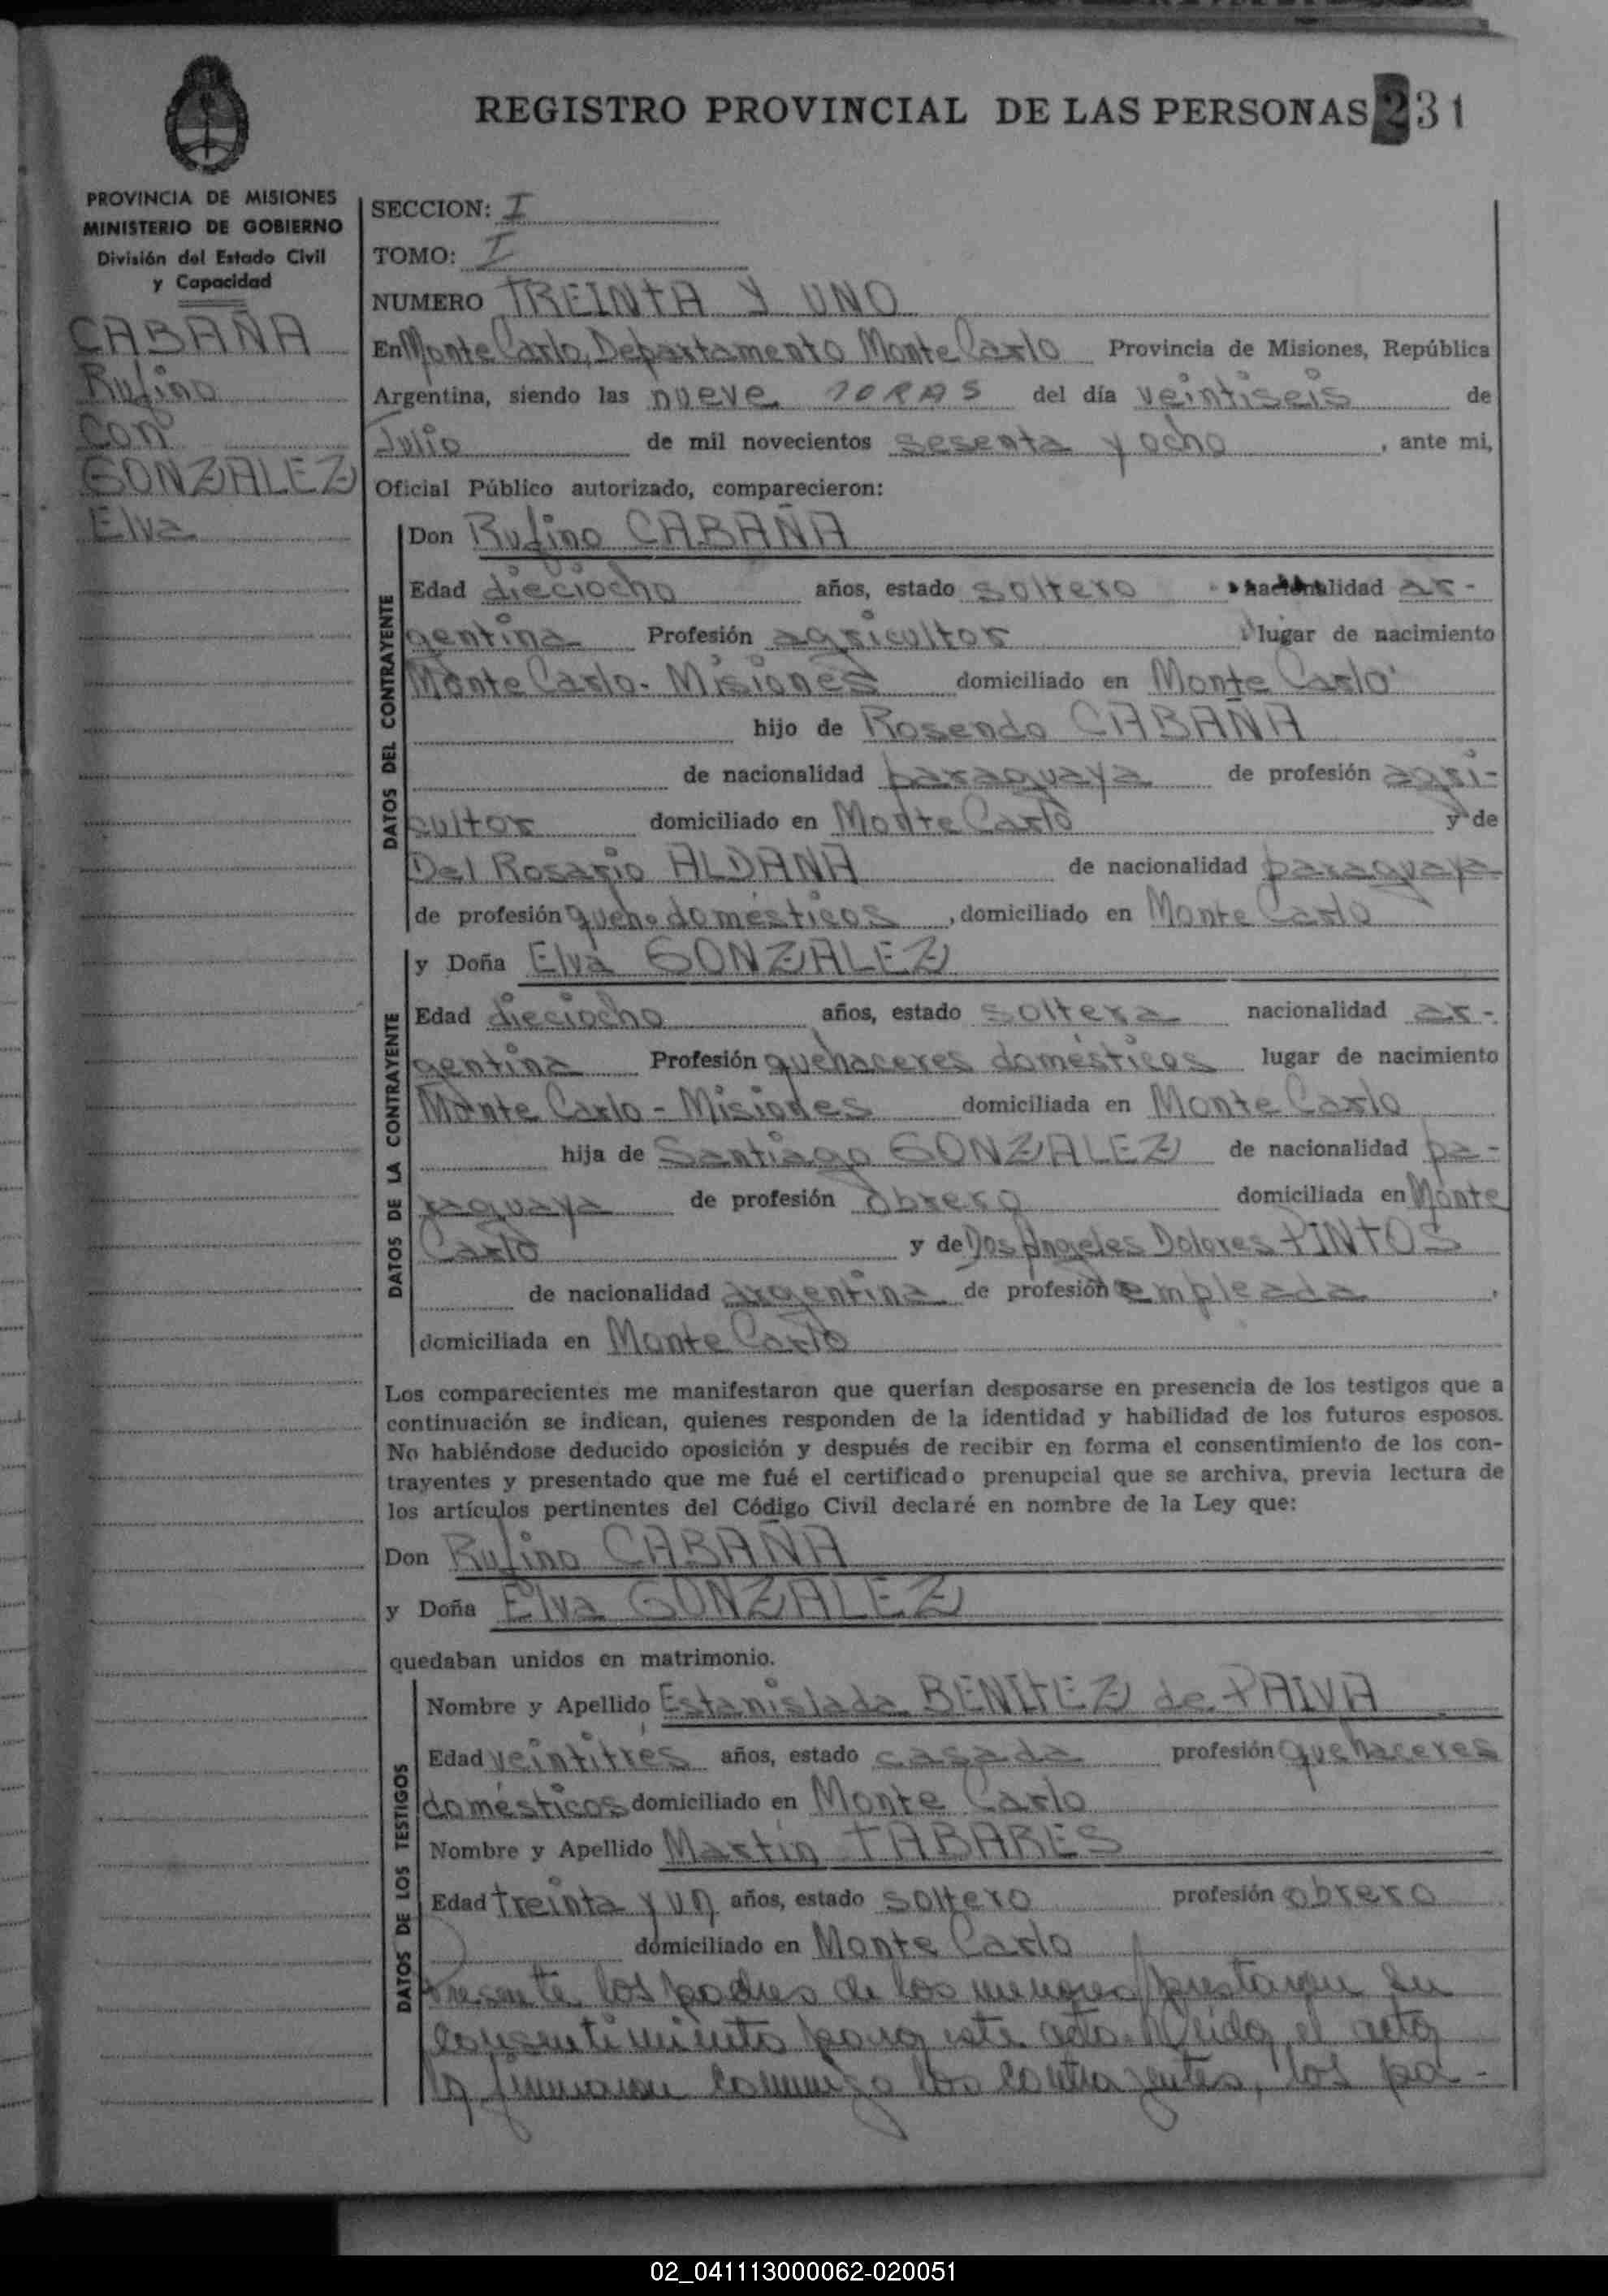 REGISTRO PROVINCIAL DE LAS PERSONAS 231
PROVINCIA DE MISIONES
MINISTERIO DE GOBIERNO
División del Estado Civil
y Capacidad
CABAÑA
Rufino
con
GONZALEZ
Elva
SECCION: I
TOMO: I
NUMERO TREINTA Y UNO
En Monte Carlo, Departamento Monte Carlo Provincia de Misiones, República
Argentina, siendo las nueve HORAS del día veintiseis de
Julio de mil novecientos sesenta y ocho, ante mi,
Oficial Público autorizado, comparecieron:
DATOS DEL CONTRAYENTE
Don Rufino CABAÑA
Edad dieciocho años, estado soltero nacionalidad ar-
gentina Profesión agricultor lugar de nacimiento
Monte Carlo - Misiones domiciliado en Monte Carlo
hijo de Rosendo CABAÑA
de nacionalidad paraguaya de profesión agri-
cultor domiciliado en Monte Carlo y de
Del Rosario ALDANA de nacionalidad paraguaya
de profesión queh. domésticos, domiciliado en Monte Carlo
DATOS DE LA CONTRAYENTE
y Doña Elva GONZALEZ
Edad dieciocho años, estado soltera nacionalidad ar-
gentina Profesión quehaceres domésticos lugar de nacimiento
Monte Carlo - Misiones domiciliada en Monte Carlo
hija de Santiago GONZALEZ de nacionalidad pa-
raguaya de profesión obrero domiciliada en Monte
Carlo y de Dos Angeles Dolores PINTOS
de nacionalidad argentina de profesión empleada,
domiciliada en Monte Carlo
Los comparecientes me manifestaron que querían desposarse en presencia de los testigos que a
continuación se indican, quienes responden de la identidad y habilidad de los futuros esposos.
No habiéndose deducido oposición y después de recibir en forma el consentimiento de los con-
trayentes y presentado que me fué el certificado prenupcial que se archiva, previa lectura de
los artículos pertinentes del Código Civil declaré en nombre de la Ley que:
Don Rufino CABAÑA
y Doña Elva GONZALEZ
quedaban unidos en matrimonio.
DATOS DE LOS TESTIGOS
Nombre y Apellido Estanislada BENITEZ de PAIVA
Edad veintitrés años, estado casada profesión quehaceres
domésticos domiciliado en Monte Carlo
Nombre y Apellido Martín TABARES
Edad treinta y un años, estado soltero profesión obrero
domiciliado en Monte Carlo
Presente los padres de los menores prestaron su
consentimiento para este acto. Leida el acta
la firmaron conmigo los contrayentes, los pa-
02_041113000062-020051